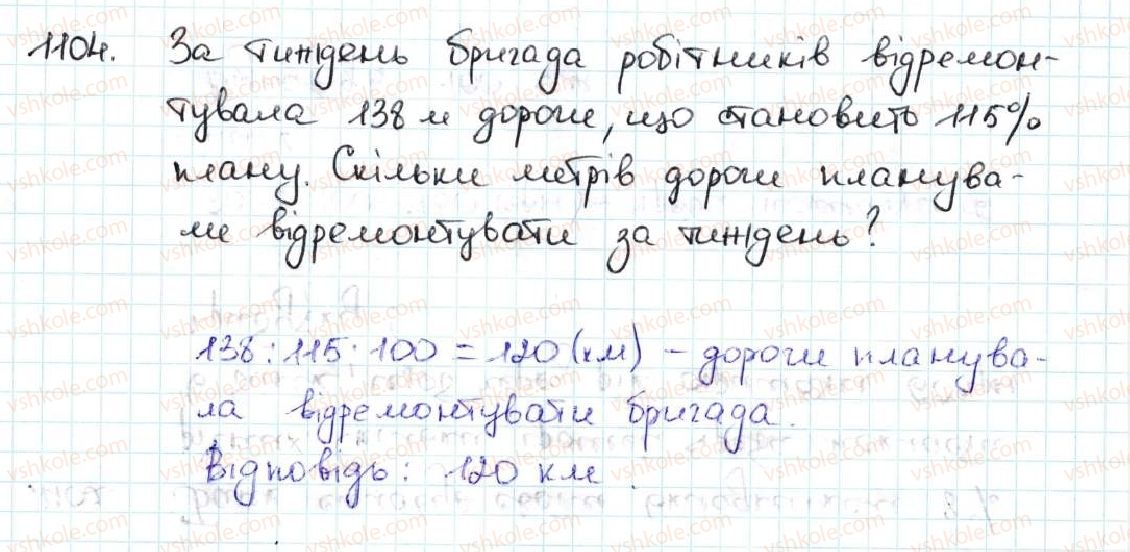 1104. За тиждень бригада робітників відремон-
тувала 138 м дороги, що становить 115%
плану. Скільки метрів дороги планува-
ли відремонтувати за тиждень?
138 : 115 · 100 = 120 (км) - дороги планува-
ла відремонтувати бригада.
Відповідь: 120 км.